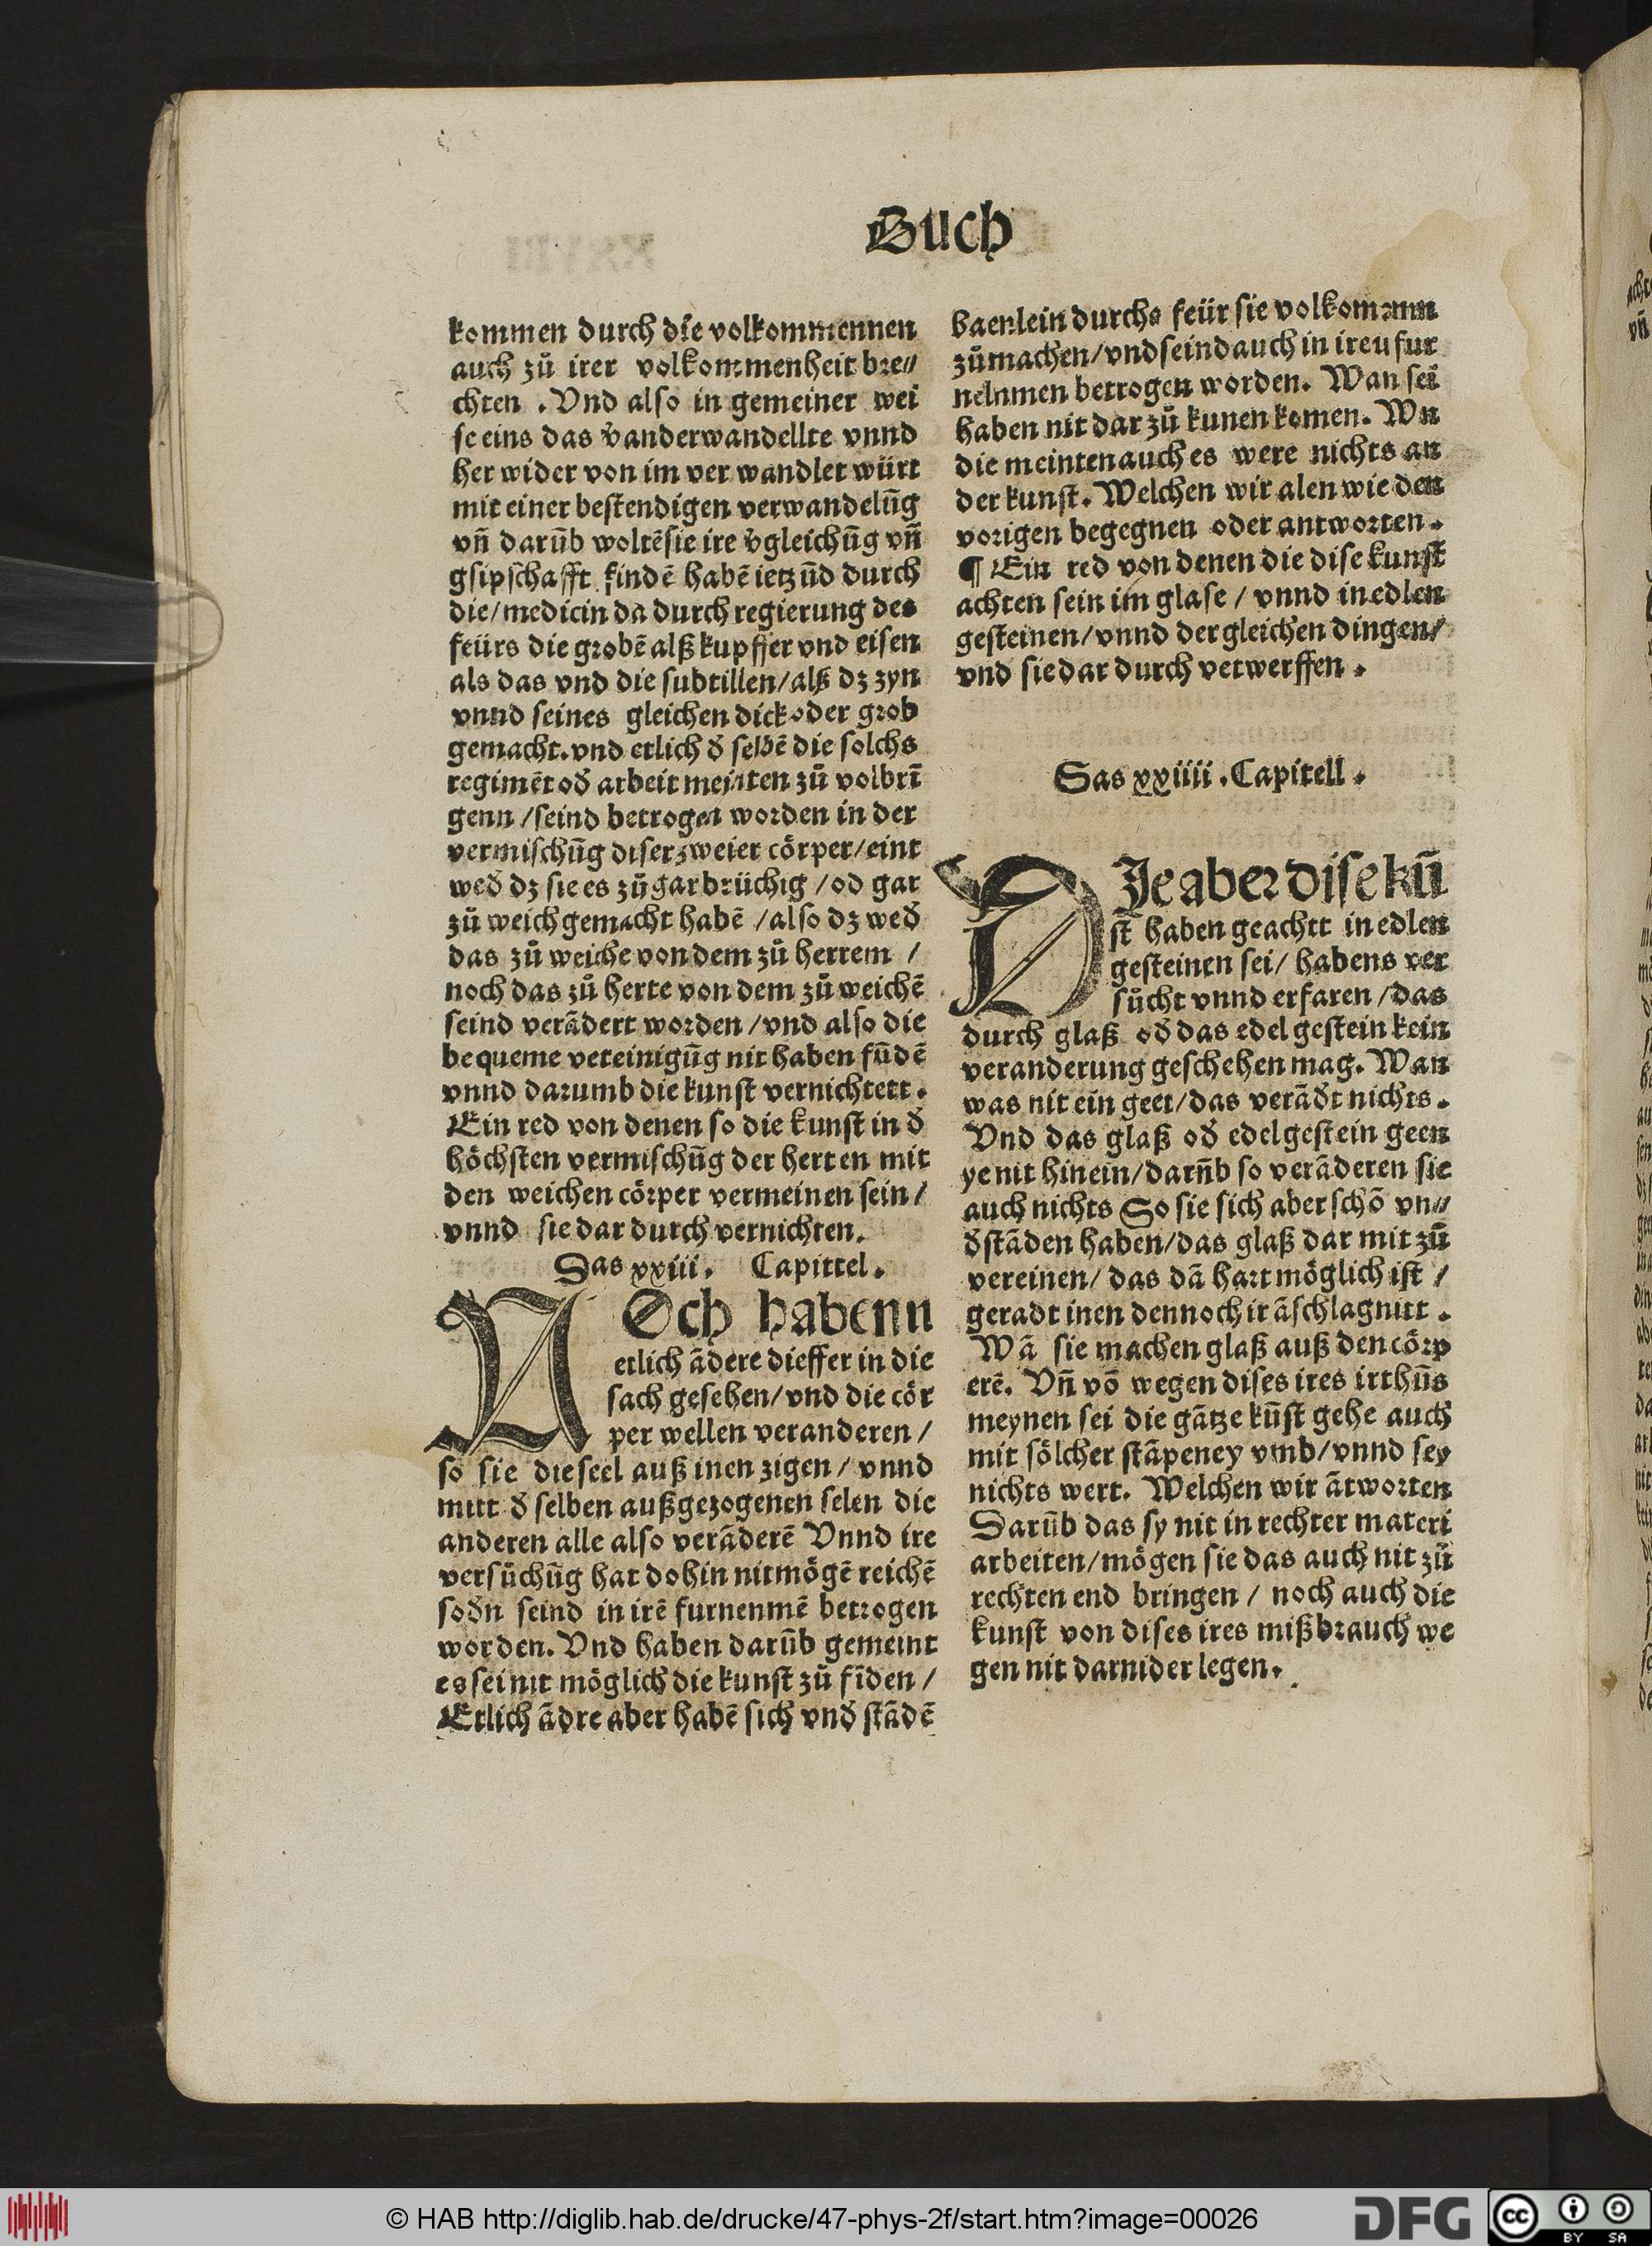 Buch
kommen durch die volkommennen
auch zů irer volkommenheit bre⸗
chten . Vnd also in gemeiner wei
se eins das v̄anderwandellte vnnd
her wider von im ver wandlet würt
mit einer bestendigen verwandelūg
vn̄ darūb woltē sie ire v̄gleichūg vn̄
gsipschafft findē habē ietzūd durch
die/medicin da durch regierung des
feürs die grobē alß kupffer vnd eisen
als das vnd die subtillen/alß dz zyn
vnnd seines gleichen dick oder grob
gemacht. vnd etlich d̄ selbē die solchs
regimēt od̄ arbeit meinten zů volbrī
genn /seind betrogen worden in der
vermischūg diser zweier cörper/eint
wed̄ dz sie es zů gar brüchig /od gar
zů weich gemacht habē /also dz wed̄
das zů weiche von dem zů herrem /
noch das zů herte von dem zů weichē
seind verādert worden /vnd also die
bequeme vereinigūg nit haben fūdē
vnnd darumb die kunst vernichtett.
Ein red von denen so die kunst in d̄
höchsten vermischūg der herten mit
den weichen cörper vermeinen sein/
vnnd sie dar durch vernichten.
Das xxiii. Capittel.
NOch habenn
etlich ādere dieffer in die
sach gesehen/vnd die cör
per wellen veranderen /
so sie die seel auß inen zigen / vnnd
mitt d̄ selben außgezogenen selen die
anderen alle also verāderē Vnnd ire
versůchūg hat dohin nit mögē reichē
sod̄n seind in irē furnenmē betrogen
worden. Vnd haben darūb gemeint
es sei nit möglich die kunst zů fīden /
Etlich ādre aber habē sich vnd̄ stādē
baenlein durchs feür sie volkommnn
zůmachen/vnd seind auch in ireu fur
nelnmen betrogen worden. Wan sei
haben nit dar zů kunen komen. Wn
die meinten auch es were nichts an
der kunst. Welchen wir alen wie den
vorigen begegnen oder antworten.
¶ Ein red von denen die dise kunst
achten sein im glase / vnnd in edlen
gesteinen/vnnd der gleichen dingen/
vnd sie dar durch verwerffen.
Das xxiiii. Capitell.
DIe aber dise kū
st haben geachtt in edlen
gesteinen sei/ habens ver
sůcht vnnd erfaren /das
durch glaß od̄ das edel gestein kein
veranderung geschehen mag. Wan
was nit ein geet/das verād̄t nichts.
Vnd das glaß od̄ edel gestein geen
ye nit hinein/darūb so verāderen sie
auch nichts So sie sich aber schō vn⸗
d̄stāden haben/das glaß dar mit zů
vereinen/ das dā hart möglich ist /
geradt inen dennoch ir āschlag nitt.
Wā sie machen glaß auß den cörp
erē. Vn̄ vō wegen dises ires irthūs
meynen sei die gātze kūst gehe auch
mit sölcher stāpeney vmb/vnnd sey
nichts wert. Welchen wir ātworten
Darūb das sy nit in rechter materi
arbeiten/mögen sie das auch nit zů
rechten end bringen / noch auch die
kunst von dises ires mißbrauch we
gen nit darnider legen.
© HAB http://diglib.hab.de/drucke/47-phys-2f/start.htm?image=00026
DFG
cc BY SA